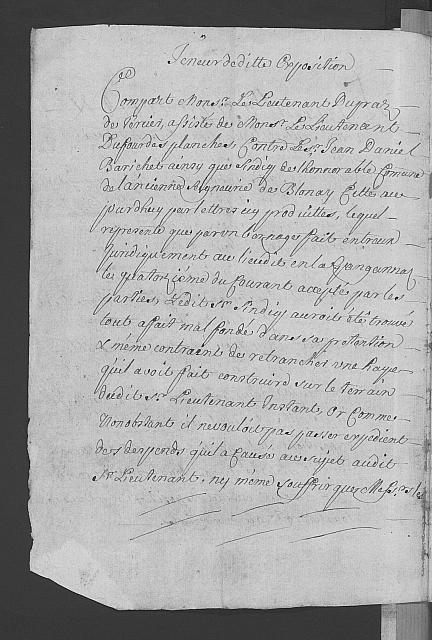 Teneur de ditte Exposition
Compart Mons.r Le Lieutenant Dupraz
de Vevier, assisté de Mons.r Le Lieutenant
Dufour des planches, Contre Le S.r Jean Daniel
Barichet ainsy que Sindiq de l'honnorable Comune
de l'ancienne Seigneurie de Blonay Citté au
jourdhuy par lettres icy produittes, lequel
represente que par un bornage fait entr'eux
Juridiquement au lieudit en la Grangannaz
le quatorziéme du Courant accepté par les
parties, Ledit S.r Sindiq auroit été trouvé
tout a fait mal fondé dans sa pretention
& même contraint de retrancher une haye
qu'il avoit fait construire sur le terrain
dudit S.r Lieutenant Instant, Or Comme
Nonobstant il ne vouloit pas passer expedient
des despends qu'il a Causé au sujet audit
S.r Lieutenant, ny même souffrir que Mess.rs les